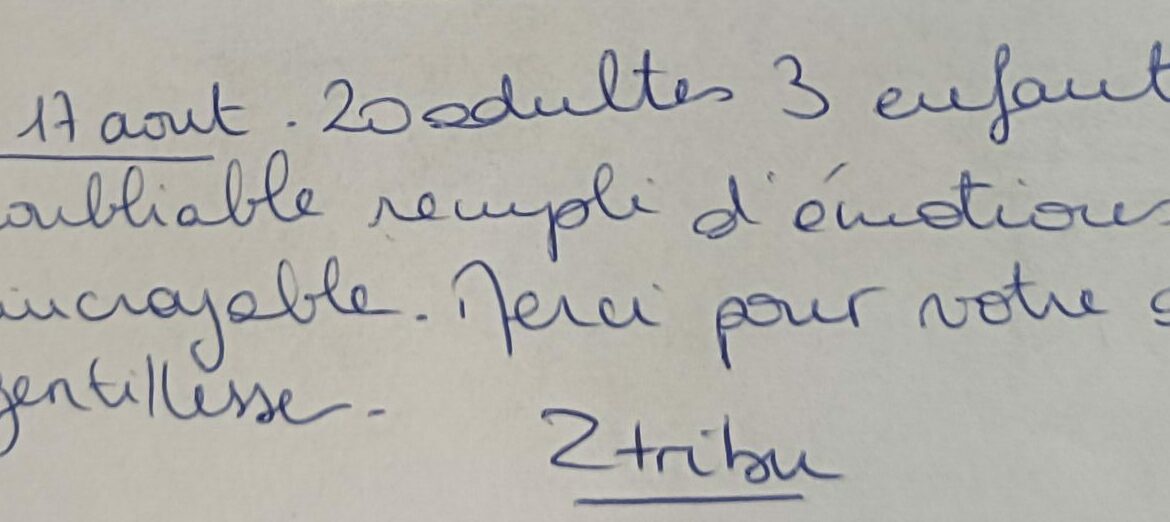 17 aout. 20 adultes 3 enfant
oubliable rempli d'émotions
incroyable. Merci pour votre
gentillesse.
Ztribu